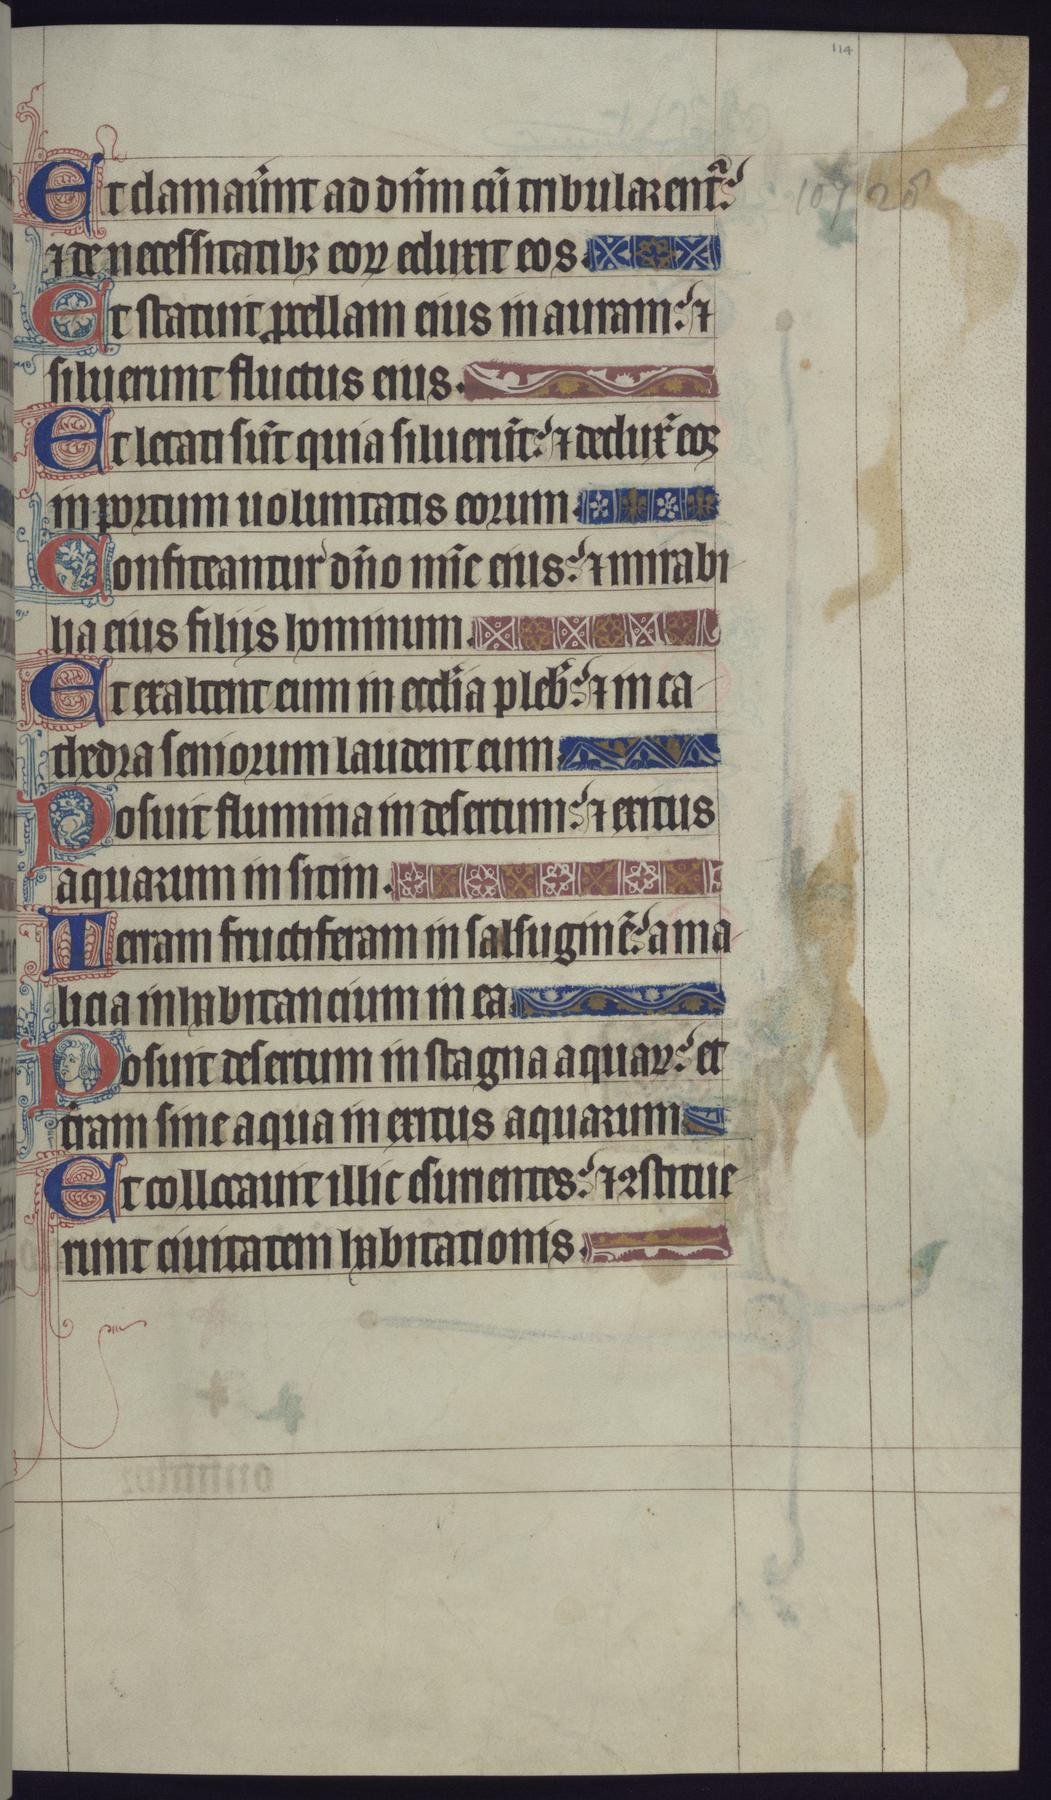 114
107 28
Et clamaũnt ad dñm cũ tribularent᷑:
⁊ de necessitatibꝫ eoꝝ eduxit eos.
Et statuit ꝓcellam eius in auram: ⁊
siluerunt fluctus eius.
Et letati sũt quia siluerũt: ⁊ deduxͥ eos
in portum uoluntatis eorum.
Confiteantur dño mĩe eius: ⁊ mirabi
lia eius filijs hominum.
Et exaltent eum in ecclĩa pleb̾: ⁊ in ca
thedra seniorum laudent eum
Posuit flumina in desertum: ⁊ exitus
aquarum in sitim.
Terram fructiferam in salsuginẽ: a ma
licia inhabitancium in ea.
Posuit desertum in stagna aquaꝝ: et
tram sine aqua in exitus aquarum
Et collocauit illic esurientes: ⁊ ꝯstitue
runt ciuitatem habitationis.